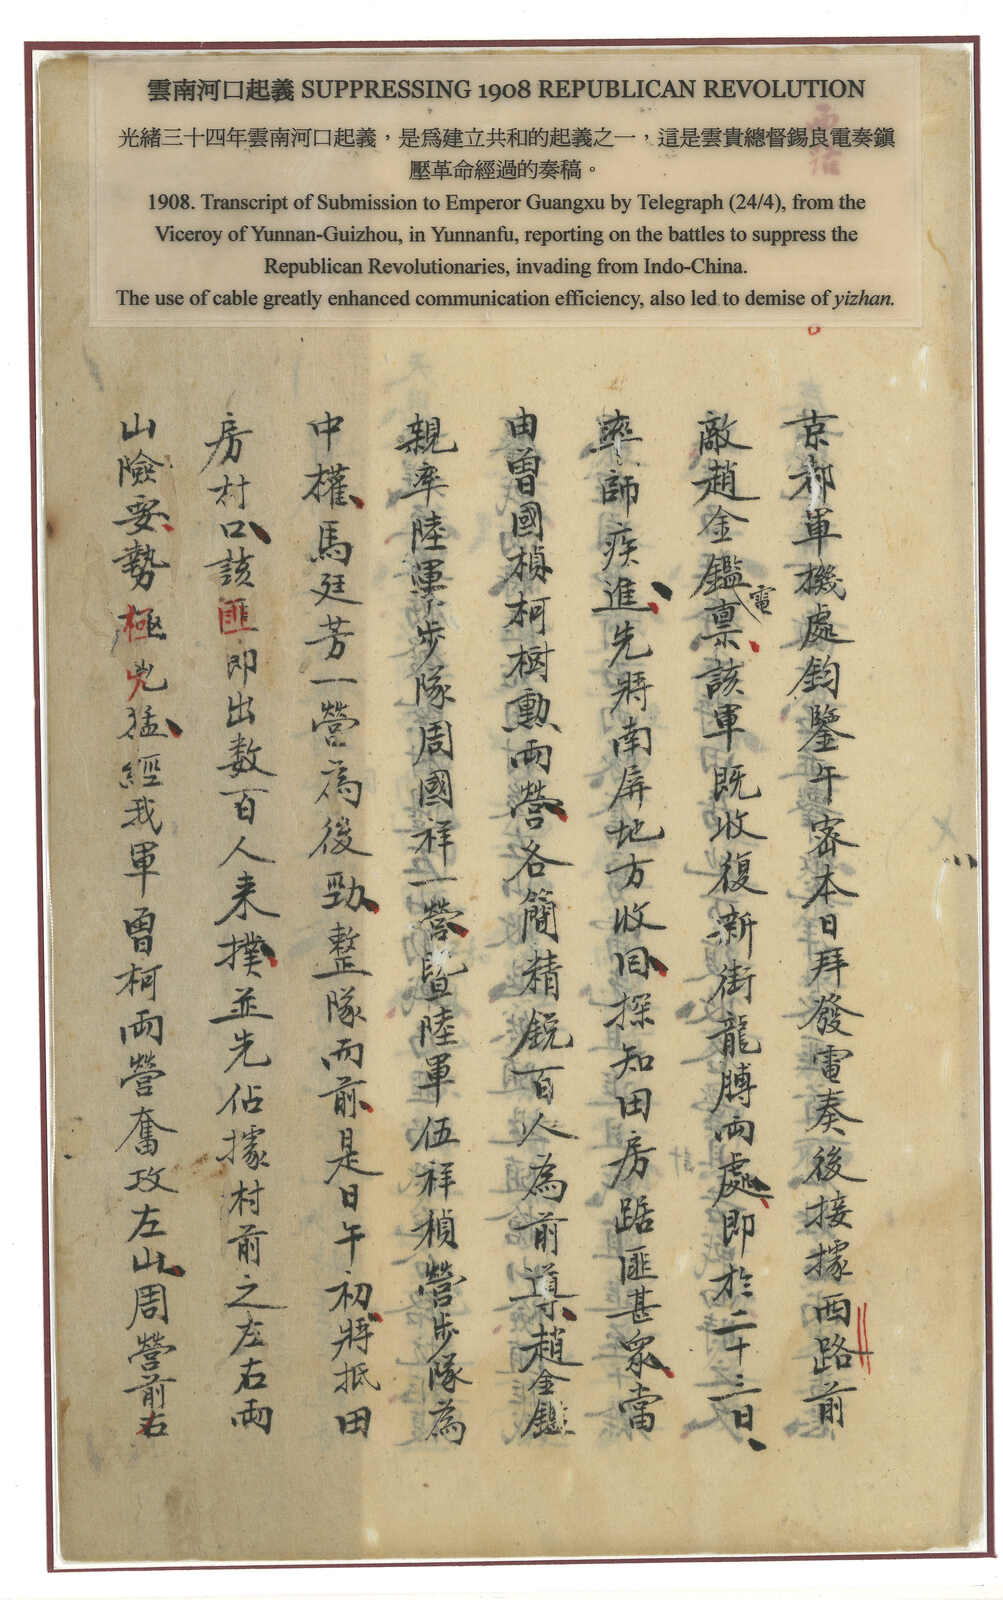 雲南河口起義 SUPPRESSING 1908 REPUBLICAN REVOLUTION
光緒三十四年雲南河口起義，是爲建立共和的起義之一，這是雲貴總督錫良電奏鎭
壓革命經過的奏稿。
1908. Transcript of Submission to Emperor Guangxu by Telegraph (24/4), from the
Viceroy of Yunnan-Guizhou, in Yunnanfu, reporting on the battles to suppress the
Republican Revolutionaries, invading from Indo-China.
The use of cable greatly enhanced communication efficiency, also led to demise of yizhan.
京都軍機處鈞鑒午密本日拜發電奏後接據西路前
敵趙金鑑電禀該軍既收復新街龍膊兩處即於二十三日
率師疾進先將南屏地方收回探知田房踞匪甚衆當
由曾國楨柯樹勲兩營各簡精銳百人為前導趙金鑑
親率陸軍步隊周國祥一營暨陸軍伍祥楨營步隊為
中權馬廷芳一營為後勁整隊而前是日午初將抵田
房村口該匪即出数百人来撲並先佔據村前之左右兩
山險要勢極兇猛經我軍曾柯兩營奮攻左山周營前右